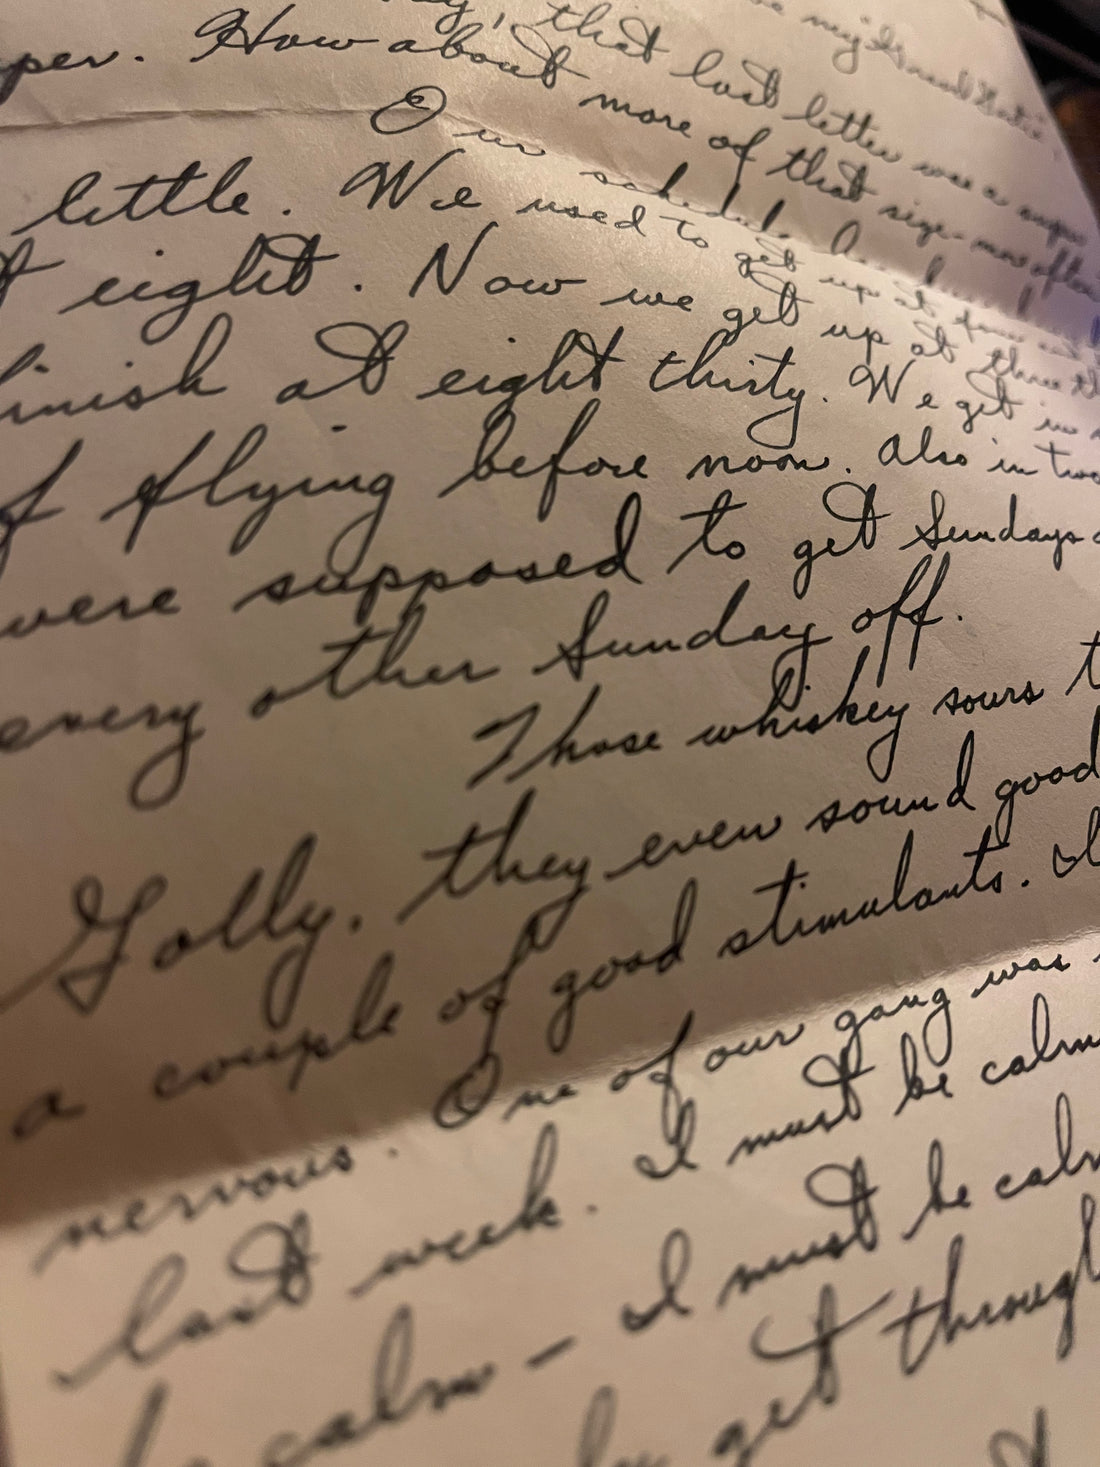 that last letter was a
per. How about more of that size - more often
Our schedule
little. We used to get up at four
t eight. Now we get up at three th
inish at eight thirty. We get in
of flying before noon. Also in two
were supposed to get Sundays
every other Sunday off.
Those whiskey sours t
Golly, they even sound good
a couple of good stimulants. I
nervous. One of our gang was
last week. I must be calm
calm - I must be calm
get through